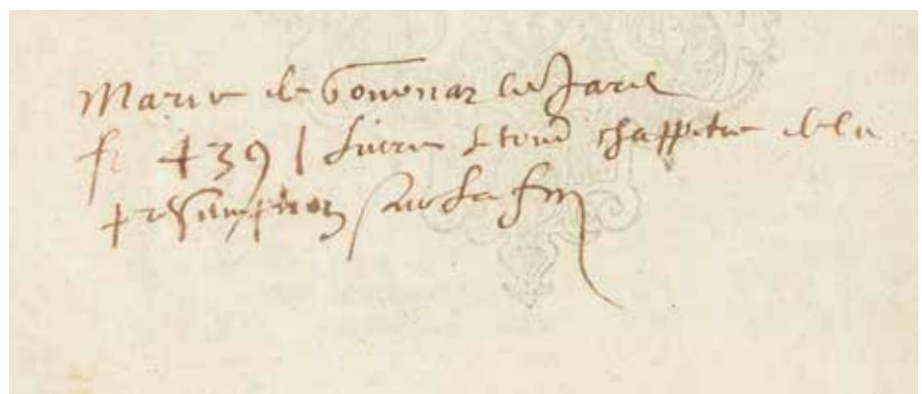 Marie de Gournay le Jars
f 439 / Livre second chappitre de la
presumption sur la fin